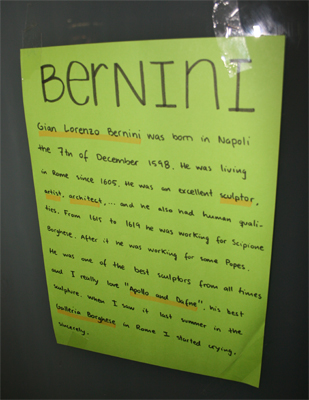 BerNINI
Gian Lorenzo Bernini was born in Napoli
the 7th of December 1598. He was living
in Rome since 1605. He was an excellent sculptor,
artist, architect,... and he also had human quali-
ties. From 1615 to 1619 he was working for Scipione
Borghese. After it he was working for some Popes.
He was one of the best sculptors from all times
and I really love "Apollo and Dafne", his best
sculpture. When I saw it last summer in the
Galleria Borghese in Rome I started crying,
sincerely.